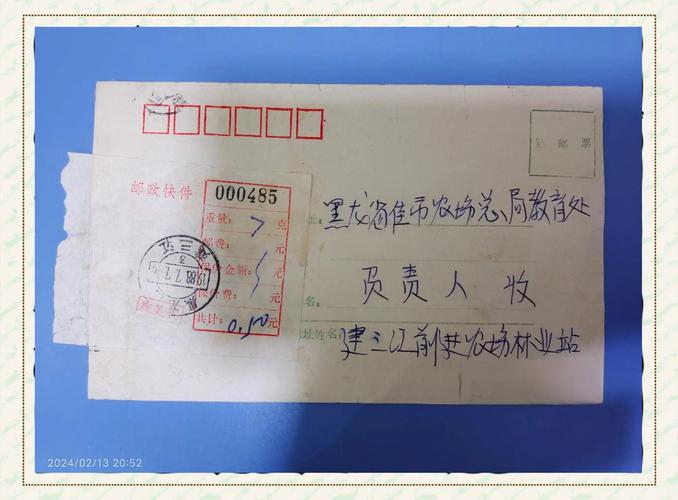 贴邮票
邮政快件
000485
重量: 7 克
邮费: 元
保价金额: 元
保价费: 元
共计: 0.50 元
黑龙省佳市农场总局教育处
负责人 收
名:
址姓名:
建三江前进农场林业站
建三江
3
1988.7.7
黑龙
2024/02/13 20:52